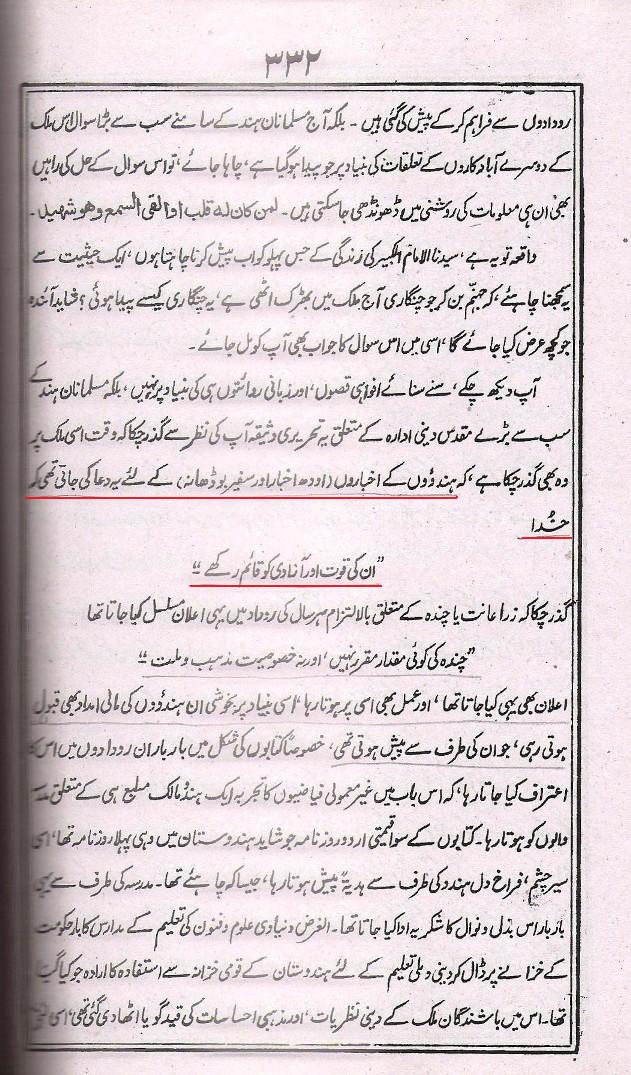 ۳۳۲
رودادوں سے فراہم کرکے پیش کی گئی ہیں ۔ بلکہ آج مسلمانان ہند کے سامنے سب سے بڑا سوال اس ملک
کے دوسرے آباد کاروں کے تعلقات کی بنیاد پر جو پیدا ہوگیا ہے، چاہا جائے، تو اس سوال کے حل کی راہیں
بھی ان ہی معلومات کی روشنی میں ڈھونڈھی جاسکتی ہیں۔ لمن کان له قلب او القی السمع وهو شهید۔
واقعہ تو یہ ہے، سیدنا الامام الکبیر کی زندگی کے جس پہلو کو اب پیش کرنا چاہتا ہوں، ایک حیثیت سے
یہ سمجھنا چاہئے، کہ جہنم بن کر جو چنگاری آج ملک میں بھڑک اٹھی ہے، یہ چنگاری کیسے پیدا ہوئی؟ شاید آئندہ
جو کچھ عرض کیا جائے گا، اسی میں اس سوال کا جواب بھی آپ کو مل جائے۔
آپ دیکھ چکے، سنے سنائے افواہی قصوں، اور زبانی روائتوں ہی کی بنیاد پر نہیں، بلکہ مسلمانان ہند کے
سب سے بڑے مقدس دینی ادارہ کے متعلق یہ تحریری وثیقہ آپ کی نظر سے گذر چکا کہ وقت اسی ملک پر
وہ بھی گذر چکا ہے، کہ ہندوؤں کے اخباروں (اودھ اخبار اور سفیر بوڈھانہ) کے لئے یہ دعا کی جاتی تھی کہ
خُدا
"ان کی قوت اور آزادی کو قائم رکھے"
گذر چکا کہ زر اعانت یا چندہ کے متعلق بالالتزام ہر سال کی روداد میں یہی اعلان مسلسل کیا جاتا تھا
"چندہ کی کوئی مقدار مقرر نہیں، اور نہ خصوصیت مذہب و ملت"
اعلان بھی یہی کیا جاتا تھا، اور عمل بھی اسی پر ہوتا رہا، اسی بنیاد پر بخوشی ان ہندوؤں کی مالی امداد بھی قبول
ہوتی رہی، جو ان کی طرف سے پیش ہوتی تھی، خصوصاً کتابوں کی شکل میں بار بار ان رودادوں میں اس کا
اعتراف کیا جاتا رہا، کہ اس باب میں غیر معمولی فیاضیوں کا تجربہ ایک ہندو مالک مطبع ہی کے متعلق مدرسہ
والوں کو ہوتا رہا۔ کتابوں کے سوا قیمتی اردو روزنامہ جو شاید ہندوستان میں وہی پہلا روزنامہ تھا، اسی
سیر چشم، فراخ دل ہندو کی طرف سے ہدیۃً پیش ہوتا رہا، جیسا کہ چاہئے تھا۔ مدرسہ کی طرف سے بھی
بار بار اس بذل و نوال کا شکریہ ادا کیا جاتا تھا۔ الغرض دنیاوی علوم و فنون کی تعلیم کے مدارس کا بار حکومت
کے خزانے پر ڈال کر دینی و ملی تعلیم کے لئے ہندوستان کے قومی خزانہ سے استفادہ کا ارادہ جو کیا گیا
تھا۔ اس میں باشندگان ملک کے دینی نظریات، اور مذہبی احساسات کی قید گویا اٹھا دی گئی تھی، اسی